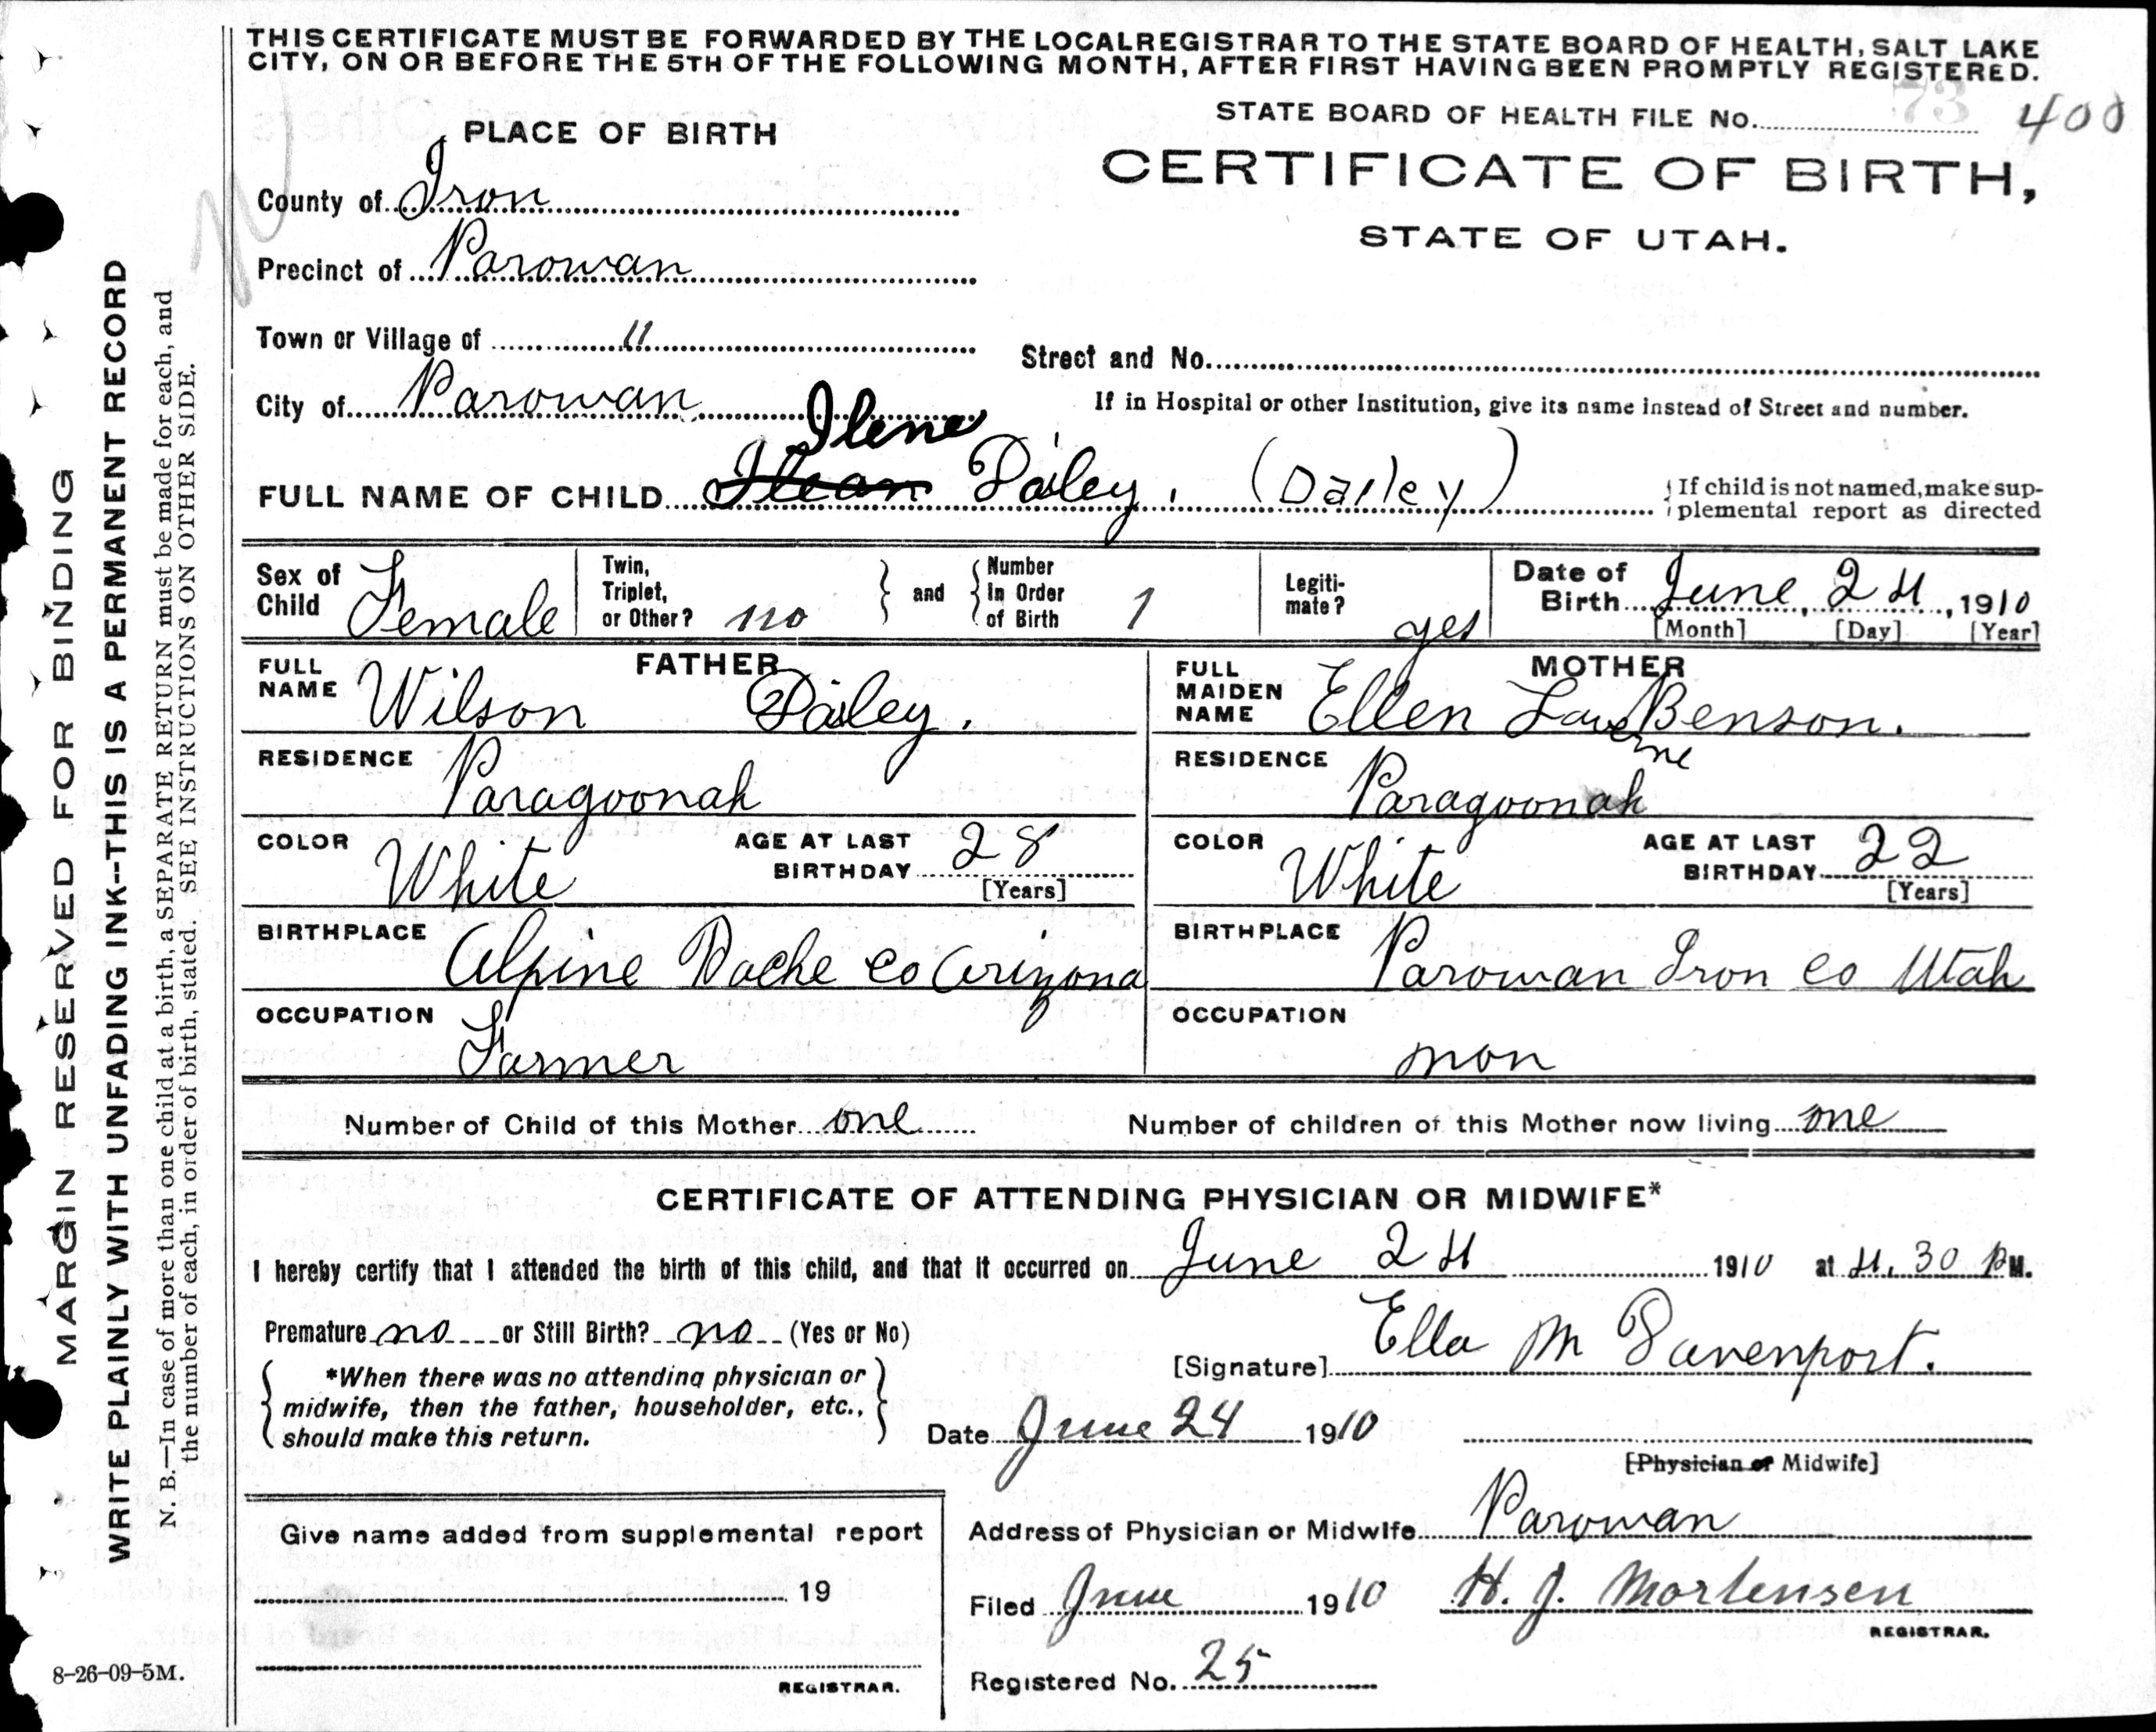 THIS CERTIFICATE MUST BE FORWARDED BY THE LOCAL REGISTRAR TO THE STATE BOARD OF HEALTH, SALT LAKE
CITY, ON OR BEFORE THE 5TH OF THE FOLLOWING MONTH, AFTER FIRST HAVING BEEN PROMPTLY REGISTERED.
73
STATE BOARD OF HEALTH FILE No. 400
CERTIFICATE OF BIRTH,
STATE OF UTAH.
PLACE OF BIRTH
County of Iron
Precinct of Parowan
Town or Village of "
Street and No.
City of Parowan
If in Hospital or other Institution, give its name instead of Street and number.
Ilene
FULL NAME OF CHILD Ilean Dailey. (Dailey)
If child is not named, make sup-
plemental report as directed
Sex of Child Female
Twin, Triplet, or Other? no
and
Number In Order of Birth 1
Legiti-mate? yes
Date of Birth June, 24, 1910
[Month] [Day] [Year]
FATHER
FULL NAME Wilson Dailey.
RESIDENCE Paragoonah
COLOR White
AGE AT LAST BIRTHDAY 28
[Years]
BIRTHPLACE Alpine Pache Co Arizona
OCCUPATION Farmer
MOTHER
FULL MAIDEN NAME Ellen Laverne Benson.
RESIDENCE Paragoonah
COLOR White
AGE AT LAST BIRTHDAY 22
[Years]
BIRTHPLACE Parowan Iron Co Utah
OCCUPATION non
Number of Child of this Mother one
Number of children of this Mother now living one
CERTIFICATE OF ATTENDING PHYSICIAN OR MIDWIFE*
I hereby certify that I attended the birth of this child, and that it occurred on June 24 1910 at 4.30 P M.
Premature no or Still Birth? no (Yes or No)
[Signature] Ella M Davenport.
*When there was no attending physician or
midwife, then the father, householder, etc.,
should make this return.
Date June 24 1910
[Physician or Midwife]
Give name added from supplemental report
19
REGISTRAR.
Address of Physician or Midwife Parowan
Filed June 1910 H. J. Mortensen
REGISTRAR.
Registered No. 25
8-26-09-5M.
MARGIN RESERVED FOR BINDING
WRITE PLAINLY WITH UNFADING INK--THIS IS A PERMANENT RECORD
N. B.—In case of more than one child at a birth, a SEPARATE RETURN must be made for each, and
the number of each, in order of birth, stated. SEE INSTRUCTIONS ON OTHER SIDE.